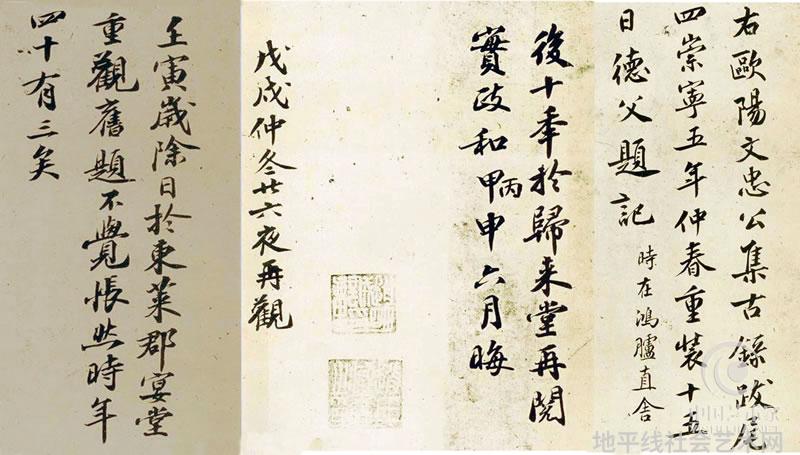 右歐陽文忠公集古錄跋尾
四崇寧五年仲春重裝十五
日德父題記
時在鴻臚直舍
後十年於歸来堂再閱
實政和甲申六月晦
丙
戊戌仲冬廿六夜再觀
壬寅歲除日於東萊郡宴堂
重觀舊題不覺悵然時年
四十有三矣
地平线社会艺术网